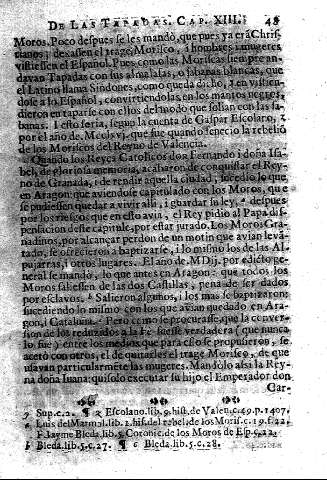 DE LAS TAPADAS. CAP. XIII. 48
Moros. Poco despues se les mandò, que pues ya erã Chris-
tianos; dexasen el trage Morisco, i hombres i mugeres
vistiessen el Español. Pues como las Moriscas siempre an-
davan Tapadas con sus almalafas, o sabanas blancas, que
el Latino llama Sindones, como queda dicho, i en vistien-
dose a lo Español, convirtiendolas en los mantos negros,
dieron en taparse con ellos del modo que solian con las sa-
banas. I esto seria, segun la cuenta de Gaspar Escolano,
por el año de que fue quando fenecio la rebeliõ
de los Moriscos del Reyno de Valencia.
Quando los Reyes Catolicos don Fernando i doña Isa-
bel, de gloriosa memoria, acabaron de conquistar el Rey-
no de Granada, i de rendir aquella ciudad, sucedio lo que
en Aragon: que aviendose capitulado con los Moros, que
se pudiessen quedar a vivir alli, i guardar su ley, despues
por los riesgos que en esto avia, el Rey pidio al Papa dis-
pensacion deste capitulo, por estar jurado. Los Moros Gra-
nadinos, por alcançar perdon de un motin que avian levã-
tado, se ofrecieron a baptizarse, i lo mismo los de las Al-
pujarras, i otros lugares. El año de MDij. por edicto ge-
neral se mandò, lo que antes en Aragon: que todos los
Moros saliessen de las dos Castillas, pena de ser dados
por esclavos. Salieron algunos, i los mas se baptizaron:
sucediendo lo mismo con los que avian quedado en Ara-
gon, i Cataluña. Pero como se procurasse, que la conver-
sion de los reduzidos a la Fe fuesse verdadera (que nunca
lo fue) entre los medios que para esto se propusieron, se
acetò con otros, el de quitarles el trage Morisco, de que
usavan particularmẽte las mugeres. Mandòlo assi la Rey-
na doña Iuana: quisolo executar su hijo el Emperador don
Car-
g Sup. c. 2. ¶ a Escolano. lib. 9. hist. de Valen. c. 49. p. 1407.
e Luis del Marmal. lib. 2. his. del rebel. de los Moris. c. 19. f. 22.
F. Iayme Bleda. lib. 5. Coronic. de los Moros de Esp. c. 22.
b Bleda. lib. 5. c. 27. ¶ c Bleda. lib. 5. c. 28.